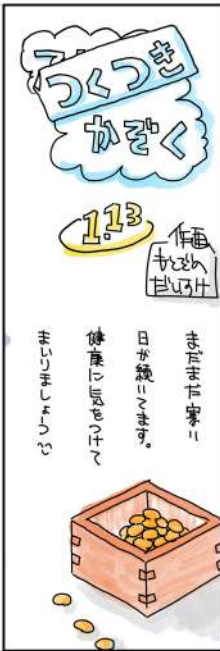 つくつき
かぞく
1.13
作画
もとぞの
だいすけ
まだまだ寒い
日が続いてます。
健康に気をつけて
まいりましょう